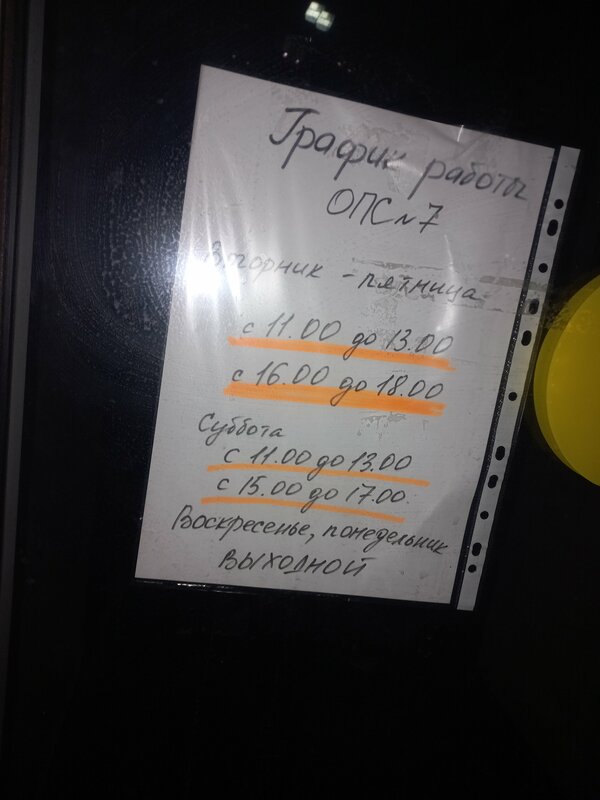 График работы
ОПС №7
Вторник - пятница
с 11.00 до 13.00
с 16.00 до 18.00
Суббота
с 11.00 до 13.00
с 15.00 до 17.00
Воскресенье, понедельник
выходной